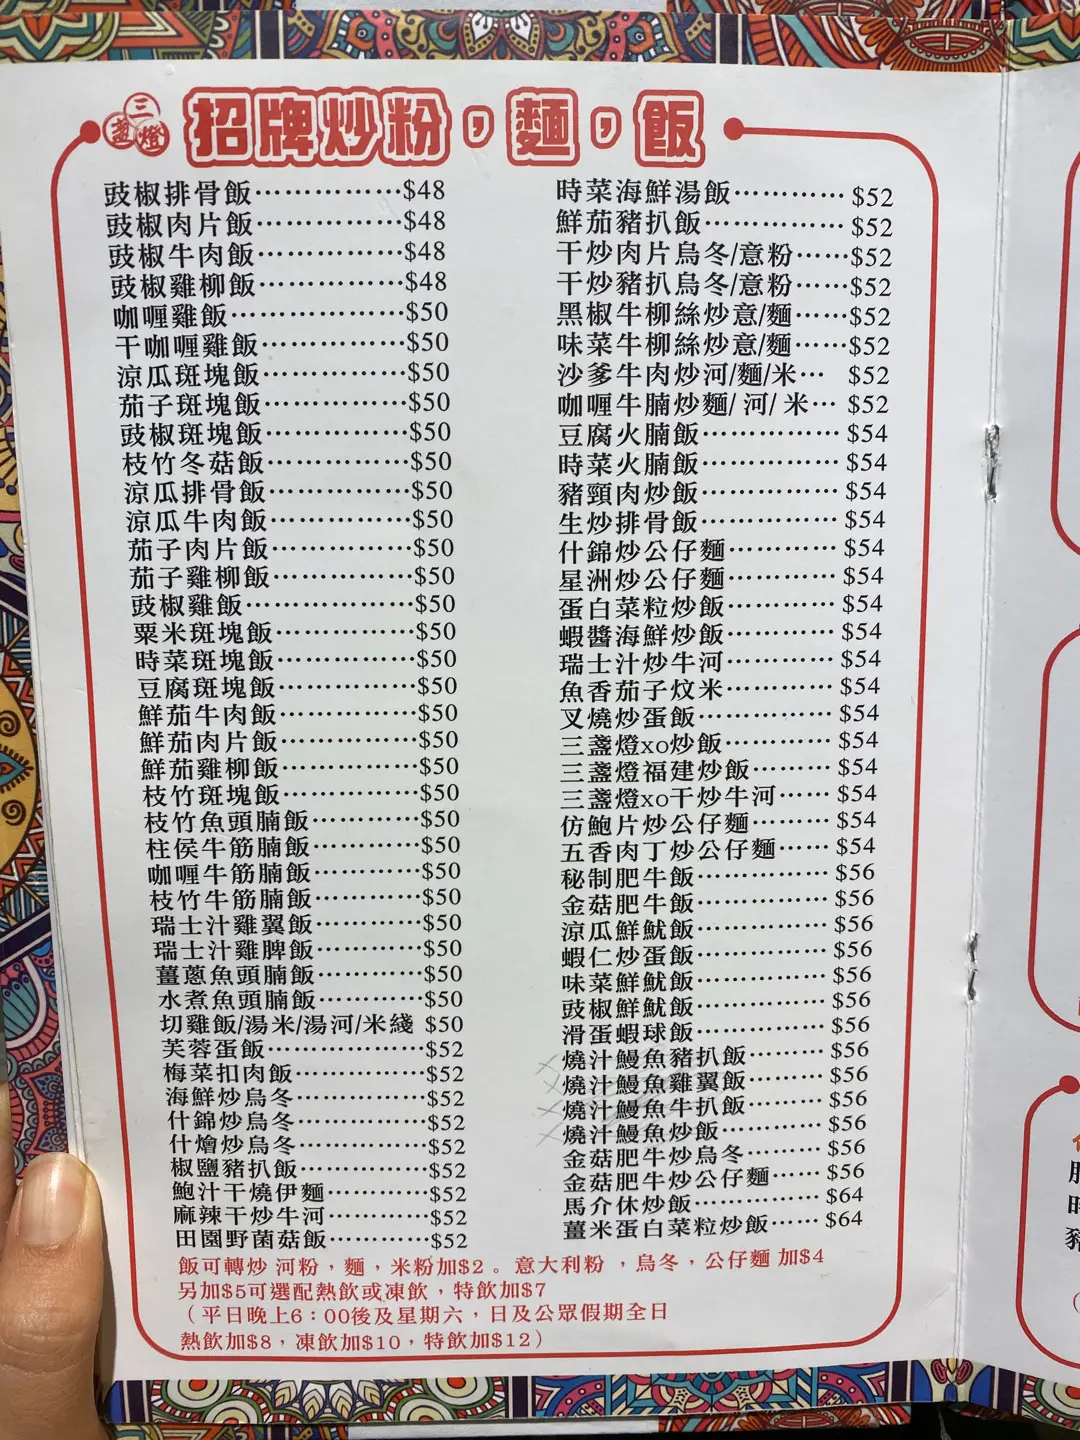 三盞燈
招牌炒粉，麵，飯
豉椒排骨飯……………$48
豉椒肉片飯……………$48
豉椒牛肉飯……………$48
豉椒雞柳飯……………$48
咖喱雞飯………………$50
干咖喱雞飯……………$50
涼瓜斑塊飯……………$50
茄子斑塊飯……………$50
豉椒斑塊飯……………$50
枝竹冬菇飯……………$50
涼瓜排骨飯……………$50
涼瓜牛肉飯……………$50
茄子肉片飯……………$50
茄子雞柳飯……………$50
豉椒雞飯………………$50
粟米斑塊飯……………$50
時菜斑塊飯……………$50
豆腐斑塊飯……………$50
鮮茄牛肉飯……………$50
鮮茄肉片飯……………$50
鮮茄雞柳飯……………$50
枝竹斑塊飯……………$50
枝竹魚頭腩飯…………$50
柱侯牛筋腩飯…………$50
咖喱牛筋腩飯…………$50
枝竹牛筋腩飯…………$50
瑞士汁雞翼飯…………$50
瑞士汁雞脾飯…………$50
薑蔥魚頭腩飯…………$50
水煮魚頭腩飯…………$50
切雞飯/湯米/湯河/米綫 $50
芙蓉蛋飯………………$52
梅菜扣肉飯……………$52
海鮮炒烏冬……………$52
什錦炒烏冬……………$52
什燴炒烏冬……………$52
椒鹽豬扒飯……………$52
鮑汁干燒伊麵…………$52
麻辣干炒牛河…………$52
田園野菌菇飯…………$52
時菜海鮮湯飯…………$52
鮮茄豬扒飯……………$52
干炒肉片烏冬/意粉……$52
干炒豬扒烏冬/意粉……$52
黑椒牛柳絲炒意/麵……$52
味菜牛柳絲炒意/麵……$52
沙爹牛肉炒河/麵/米… $52
咖喱牛腩炒麵/河/米… $52
豆腐火腩飯……………$54
時菜火腩飯……………$54
豬頸肉炒飯……………$54
生炒排骨飯……………$54
什錦炒公仔麵…………$54
星洲炒公仔麵…………$54
蛋白菜粒炒飯…………$54
蝦醬海鮮炒飯…………$54
瑞士汁炒牛河…………$54
魚香茄子炆米…………$54
叉燒炒蛋飯……………$54
三盞燈xo炒飯…………$54
三盞燈福建炒飯………$54
三盞燈xo干炒牛河……$54
仿鮑片炒公仔麵………$54
五香肉丁炒公仔麵……$54
秘制肥牛飯……………$56
金菇肥牛飯……………$56
涼瓜鮮魷飯……………$56
蝦仁炒蛋飯……………$56
味菜鮮魷飯……………$56
豉椒鮮魷飯……………$56
滑蛋蝦球飯……………$56
燒汁鰻魚豬扒飯………$56
燒汁鰻魚雞翼飯………$56
燒汁鰻魚牛扒飯………$56
燒汁鰻魚炒飯…………$56
金菇肥牛炒烏冬………$56
金菇肥牛炒公仔麵……$56
馬介休炒飯……………$64
薑米蛋白菜粒炒飯……$64
飯可轉炒 河粉，麵，米粉加$2。意大利粉，烏冬，公仔麵 加$4
另加$5可選配熱飲或凍飲，特飲加$7
（平日晚上6：00後及星期六，日及公眾假期全日
熱飲加$8，凍飲加$10，特飲加$12）